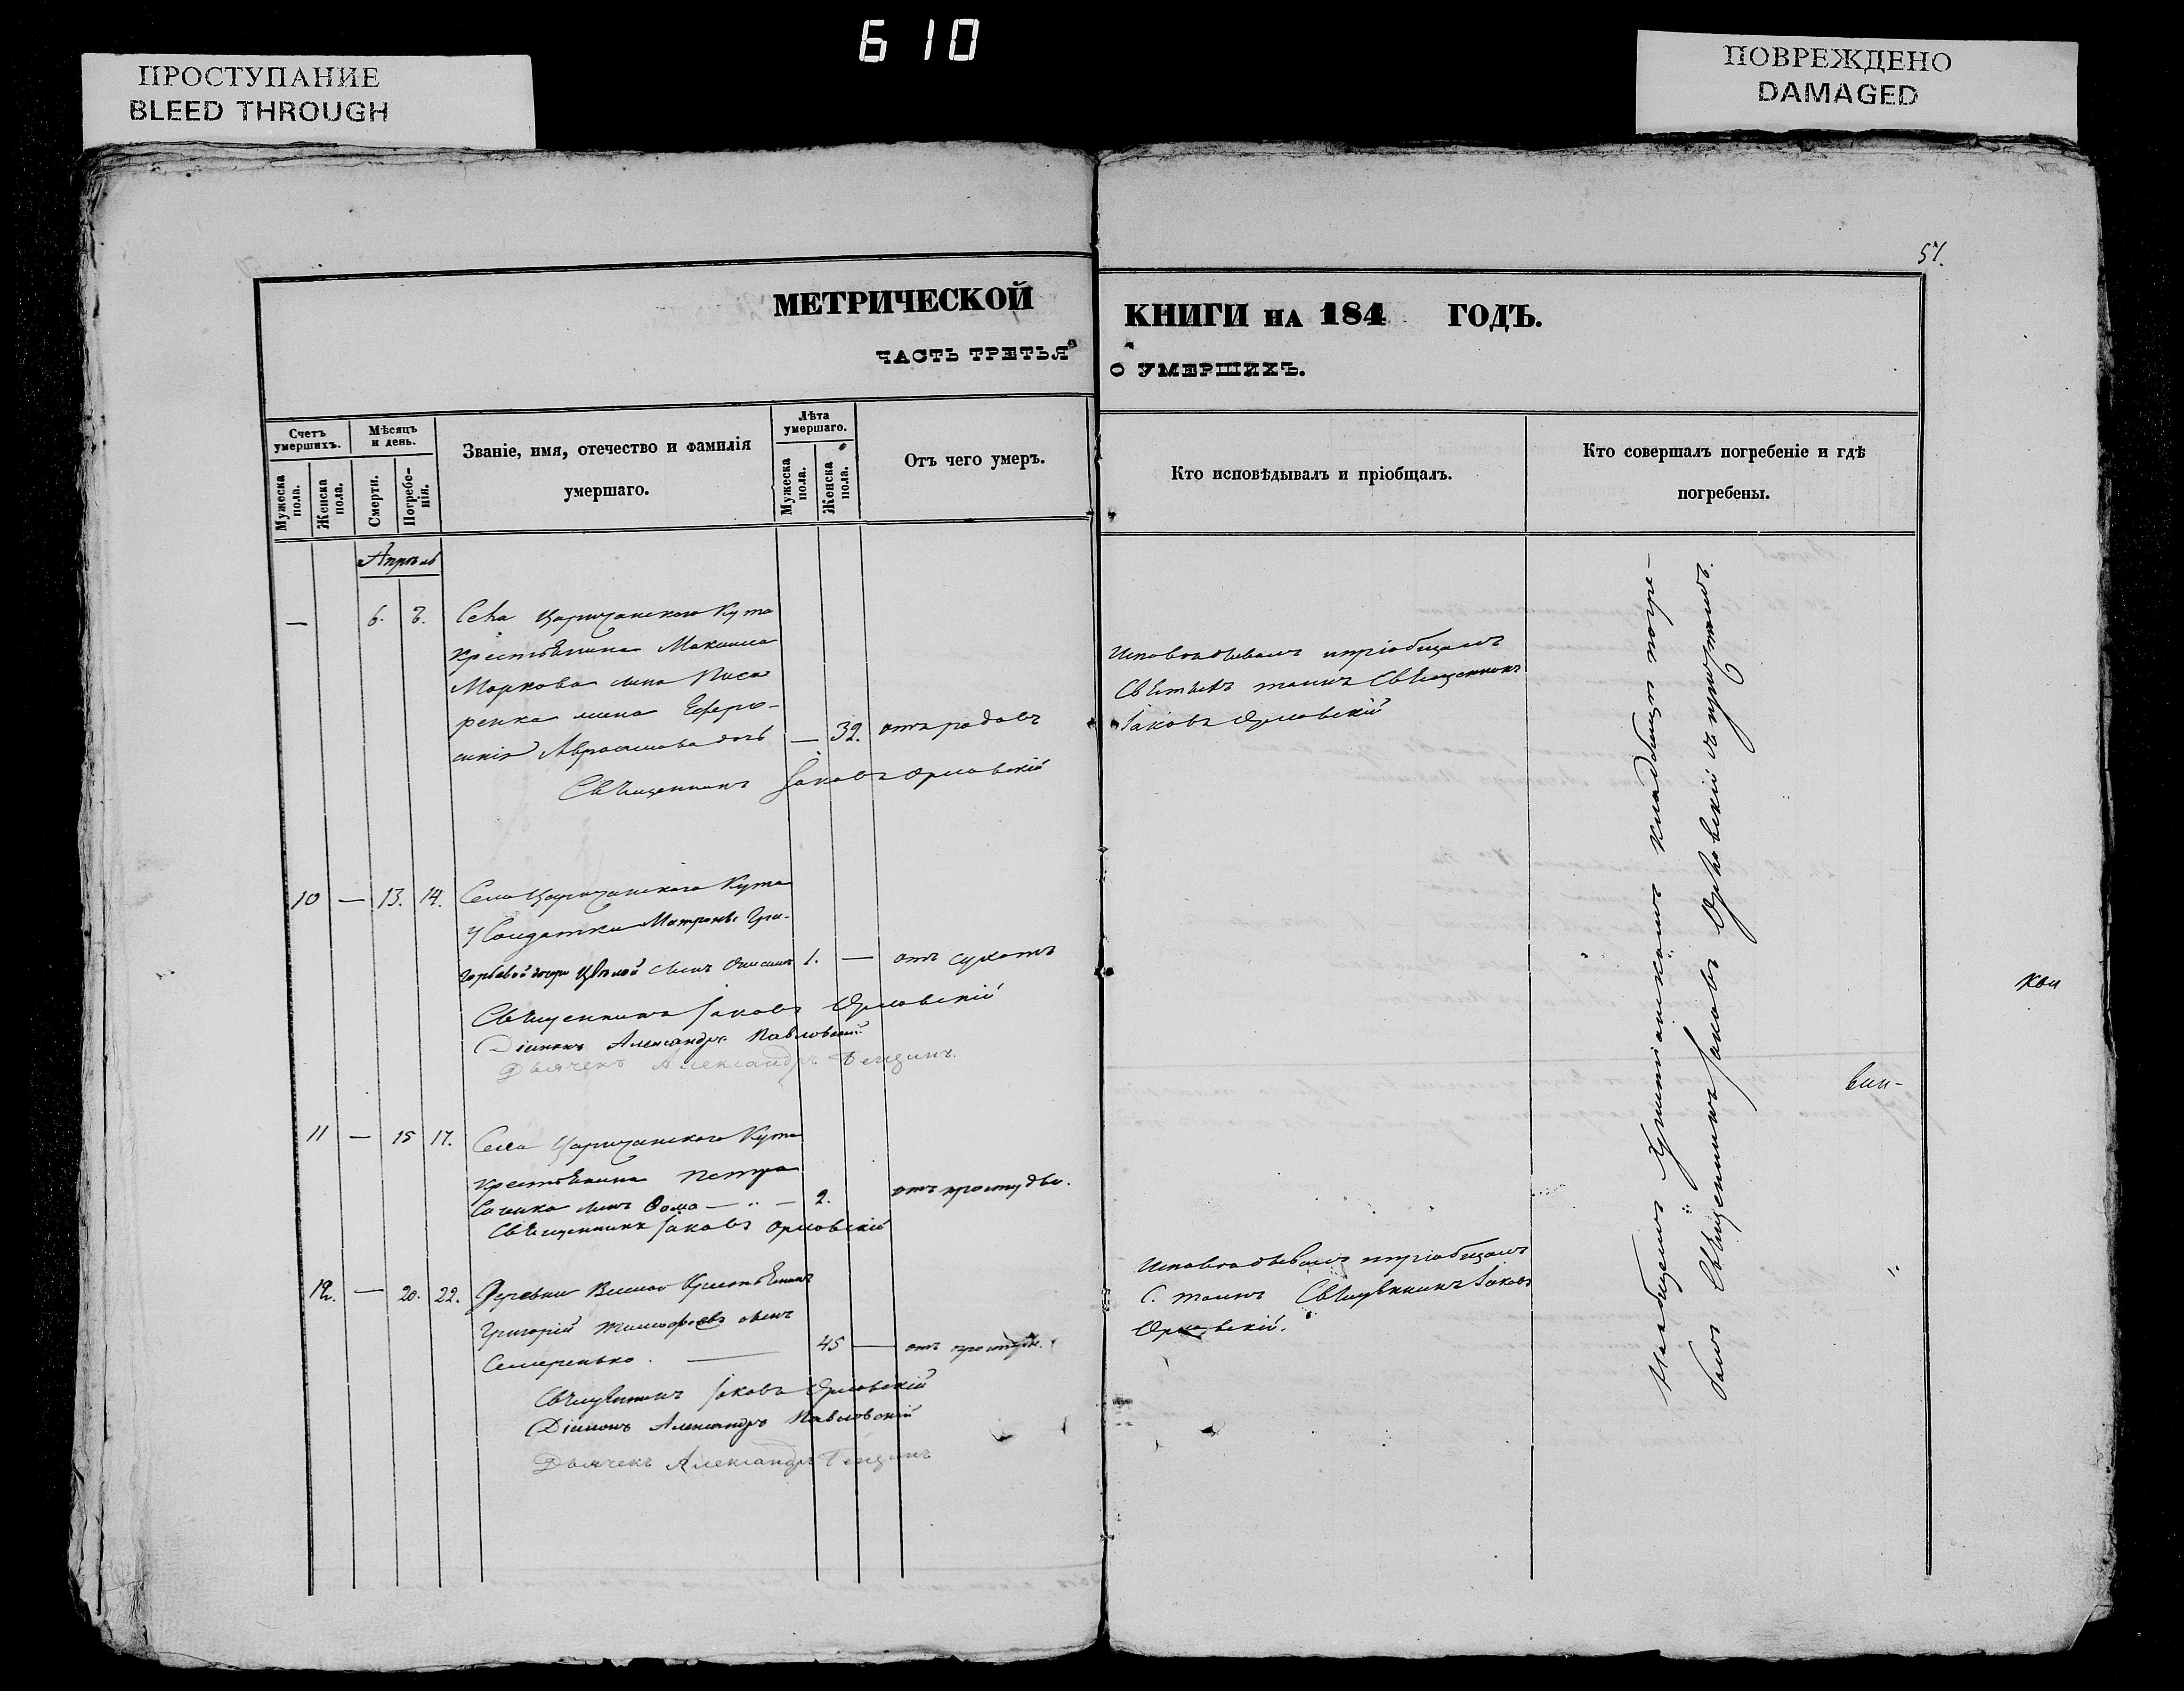 610
ПРОСТУПАНИЕ
BLEED THROUGH
ПОВРЕЖДЕНО
DAMAGED
51.
МЕТРИЧЕСКОЙ КНИГИ НА 184 ГОДЪ.
ЧАСТЬ ТРЕТЬЯ О УМЕРШИХЪ.
Счетъ умершихъ.
Мужеска пола.
Женска пола.
Мѣсяцъ и день.
Смерти.
Погребенія.
Званіе, имя, отечество и фамилія
умершаго.
Лѣта умершаго.
Мужеска пола.
Женска пола.
Отъ чего умеръ.
Кто исповѣдывалъ и пріобщалъ.
Кто совершалъ погребеніе и гдѣ
погребены.
Апрѣль
— 6. 8. Села Царичанского Кута
крестьянина Максима
Маркова сына Писа-
ренка жена Ефро-
синія Авраамова дочь — 32. отъ родовъ
Священникъ Іаковъ Орловскій
Исповѣдывалъ и пріобщалъ
Святыхъ таинъ Священникъ
Іаковъ Орловскій
10 — 13. 14. Села Царичанского Кута
у Солдатки Матроны Гри-
горьевой дочери сынъ 1. — отъ сухотъ
Священникъ Іаковъ Орловскій
Діаконъ Александръ Павловскій
Дьячекъ Александръ
11 — 15 17. Села Царичанского Кута
крестьянина Петра
сынъ Фома — 2. отъ простуды.
Священникъ Іаковъ Орловскій
12. — 20. 22. Деревни крестьянинъ
Григорій Тимофеевъ сынъ
Семеренько. — 45 — отъ простуды.
Священникъ Іаковъ Орловскій
Діаконъ Александръ Павловскій
Дьячекъ Александръ
Исповѣдывалъ и пріобщалъ
С. таинъ Священникъ Іаковъ
Орловскій.
На общемъ Христіанскомъ кладбищѣ погре-
балъ Священникъ Іаковъ Орловскій съ причтомъ.